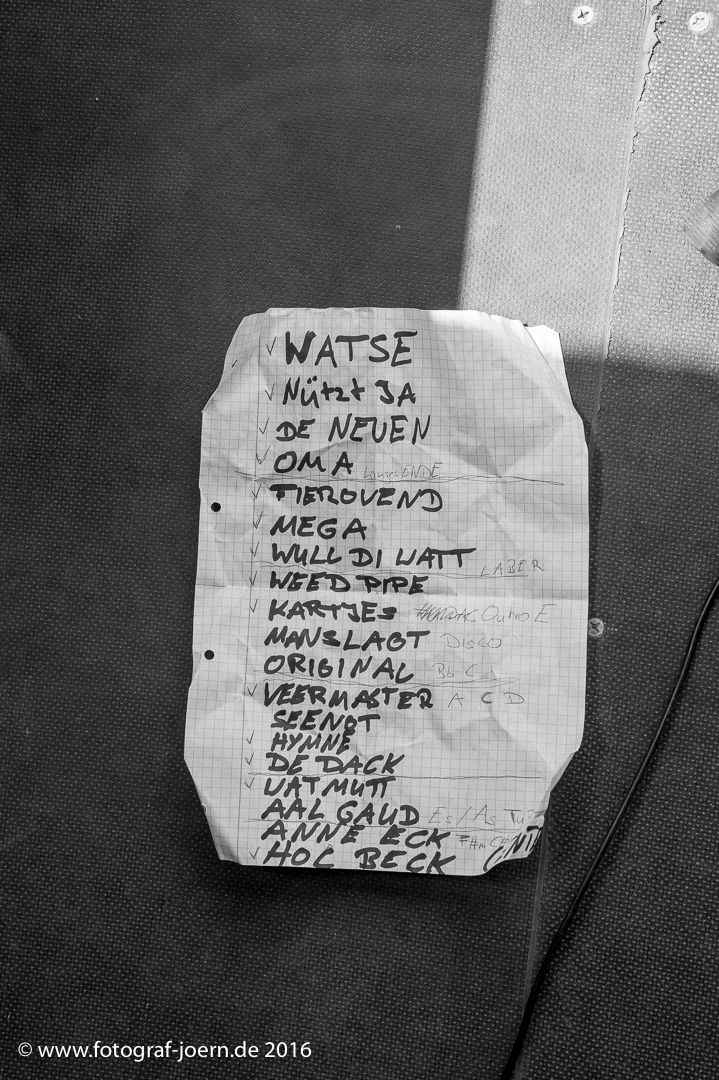 WATSE
Nützt JA
DE NEUEN
OMA ENDE
TIEROVEND
MEGA
WULL DI WATT LABER
WEED PIPE
KARTJES Outro E
MANSLAGT Disco
ORIGINAL Bb
VEERMASTER A C D
SEENOT
HYMNE
DE DACK
UATMUTT
AAL GAUD Es/As
ANNE ECK
HOL BECK
© www.fotograf-joern.de 2016